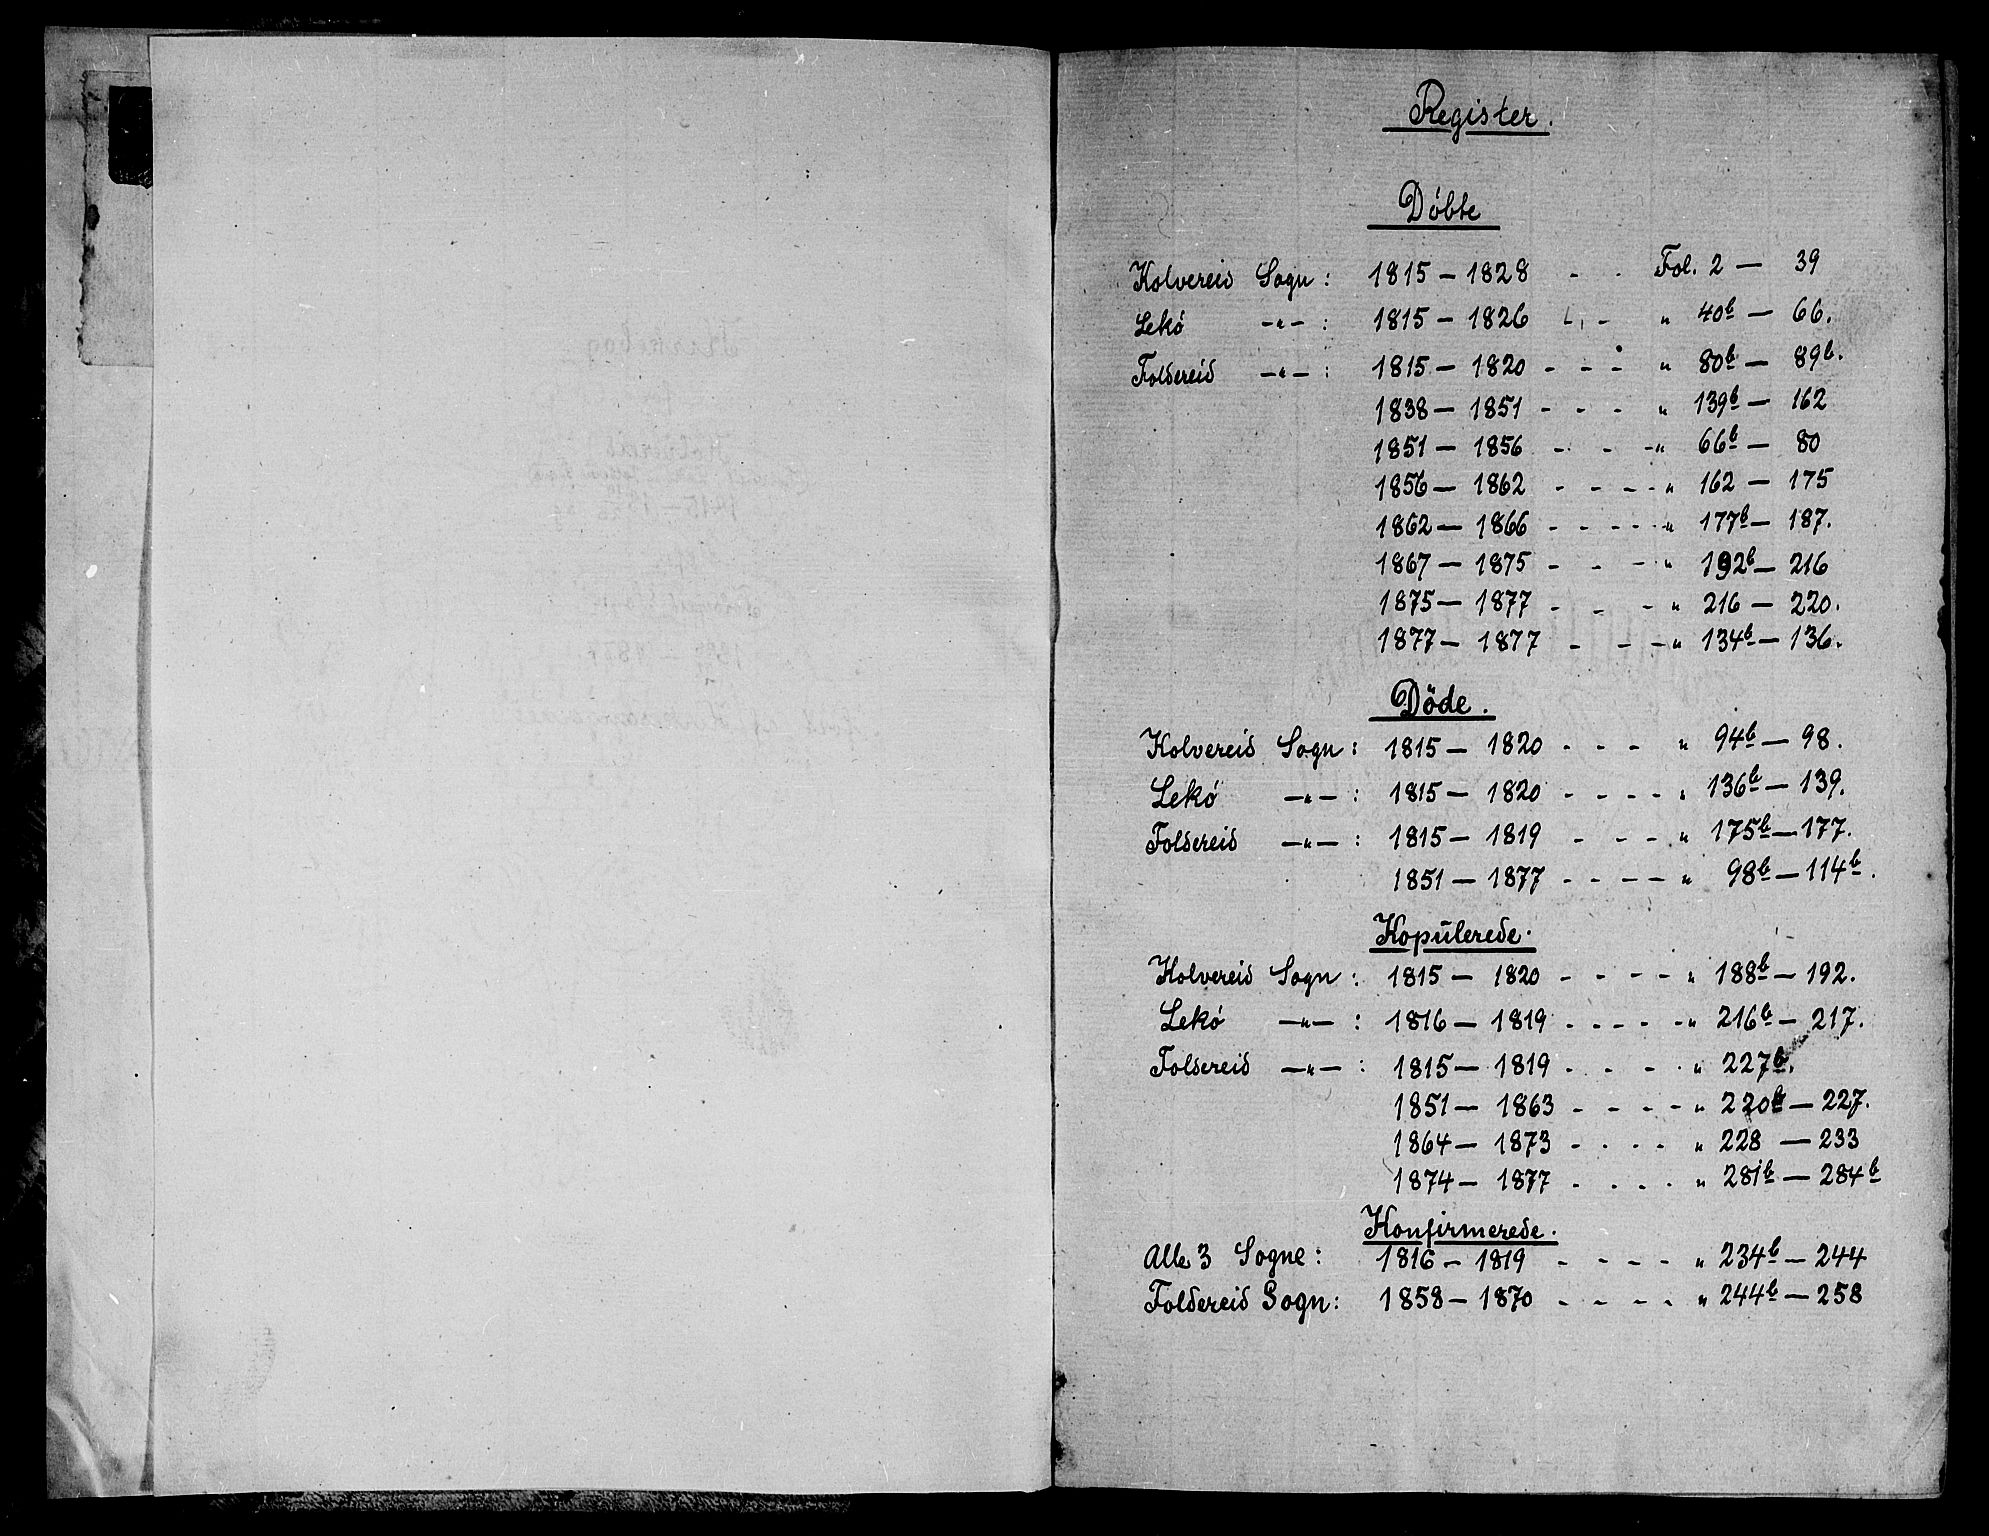 Register.
Döbte
Kolvereid Sogn: 1815 – 1828 - - Fol. 2 — 39
Lekö —„— : 1815 – 1826 - „ 40b — 66.
Foldereid —„— : 1815 – 1820 - - - „ 80b — 89b.
1838 – 1851 - - - „ 139b — 162
1851 – 1856 - - - „ 66b — 80
1856 – 1862 - - - - „ 162 — 175
1862 – 1866 - - - - - „ 177b — 187.
1867 – 1875 - - - „ 192b — 216
1875 – 1877 - - - „ 216 — 220.
1877 – 1877 - - - „ 134b — 136.
Döde.
Kolvereid Sogn: 1815 – 1820 - - - „ 94b — 98.
Lekö —„— : 1815 – 1820 - - - - „ 136b — 139.
Foldereid —„— : 1815 – 1819 - - - „ 175b — 177.
1851 – 1877 - - - - „ 98b — 114b.
Kopulerede.
Kolvereid Sogn: 1815 – 1820 - - - - „ 188b — 192.
Lekö —„— : 1816 – 1819 - - - - „ 216b — 217.
Foldereid —„— : 1815 – 1819 - - - - „ 227b.
1851 – 1863 - - - - „ 220b — 227.
1864 – 1873 - - - - „ 228 — 233
1874 – 1877 - - - - „ 281b — 284b
Konfirmerede.
Alle 3 Sogne: 1816 – 1819 - - - - „ 234b — 244
Foldereid Sogn: 1858 – 1870 - - - - „ 244b — 258